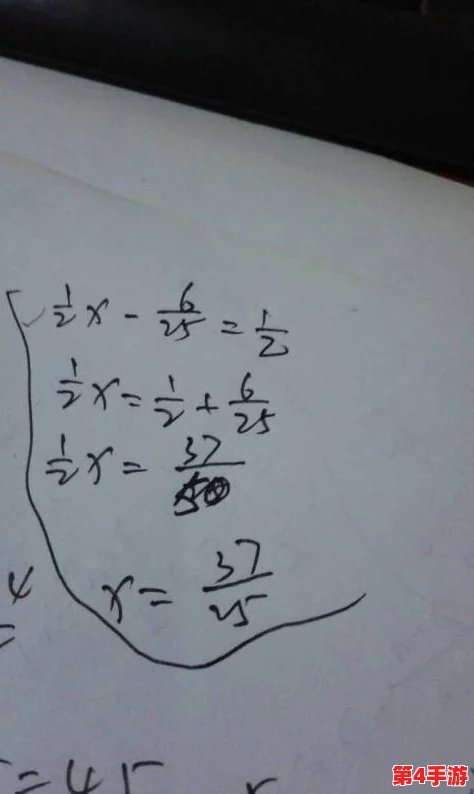 1/2 x - 6/25 = 1/2
1/2 x = 1/2 + 6/25
1/2 x = 37/50
x = 37/25
4
= 45
第4手游